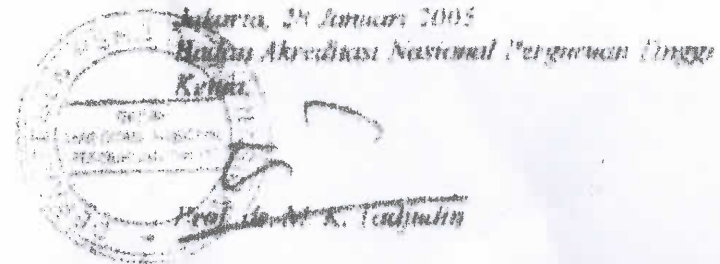 Jakarta, 28 Januari 2005
Badan Akreditasi Nasional Perguruan Tinggi
Ketua,
Prof. dr. M. K. Tadjudin